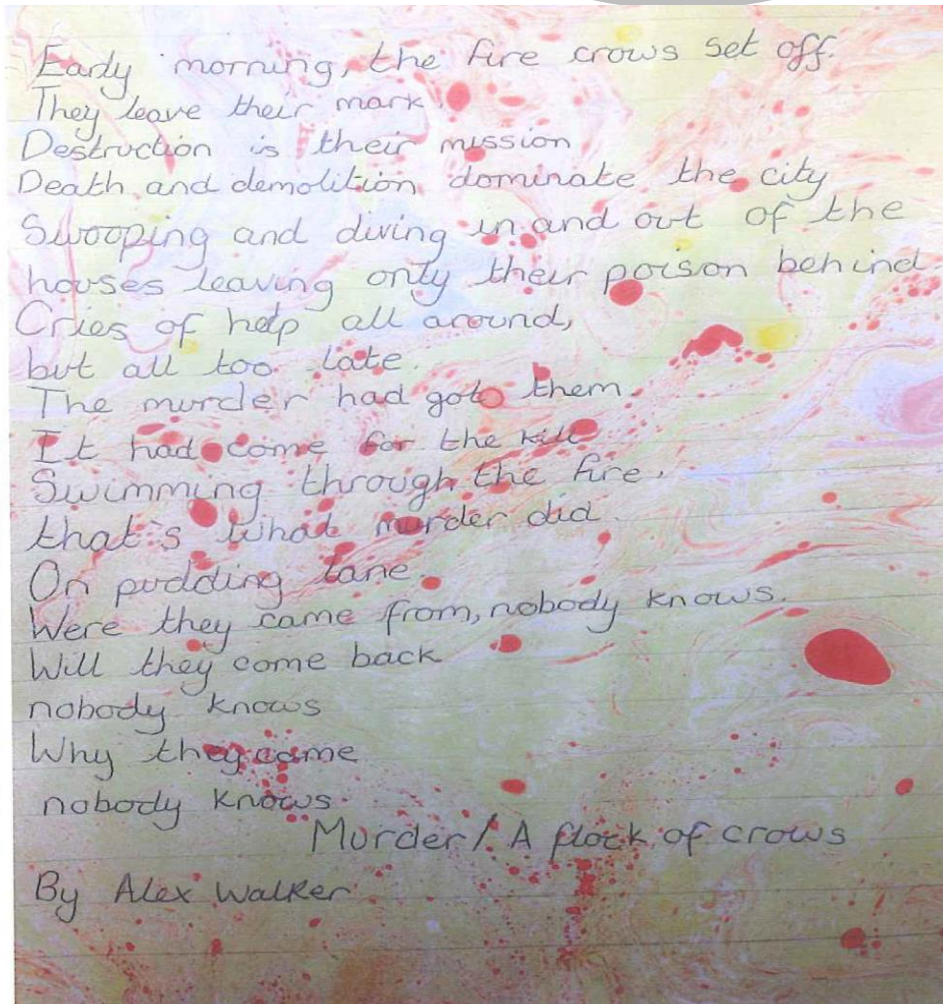 Early morning, the fire crows set off.
They leave their mark.
Destruction is their mission
Death and demolition dominate the city
Swooping and diving in and out of the
houses leaving only their poison behind.
Cries of help all around,
but all too late.
The murder had got them.
It had come for the kill
Swimming through the fire.
that's what murder did.
On pudding lane.
Were they came from, nobody knows.
Will they come back
nobody knows
Why they came
nobody knows.
Murder/ A flock of crows
By Alex Walker